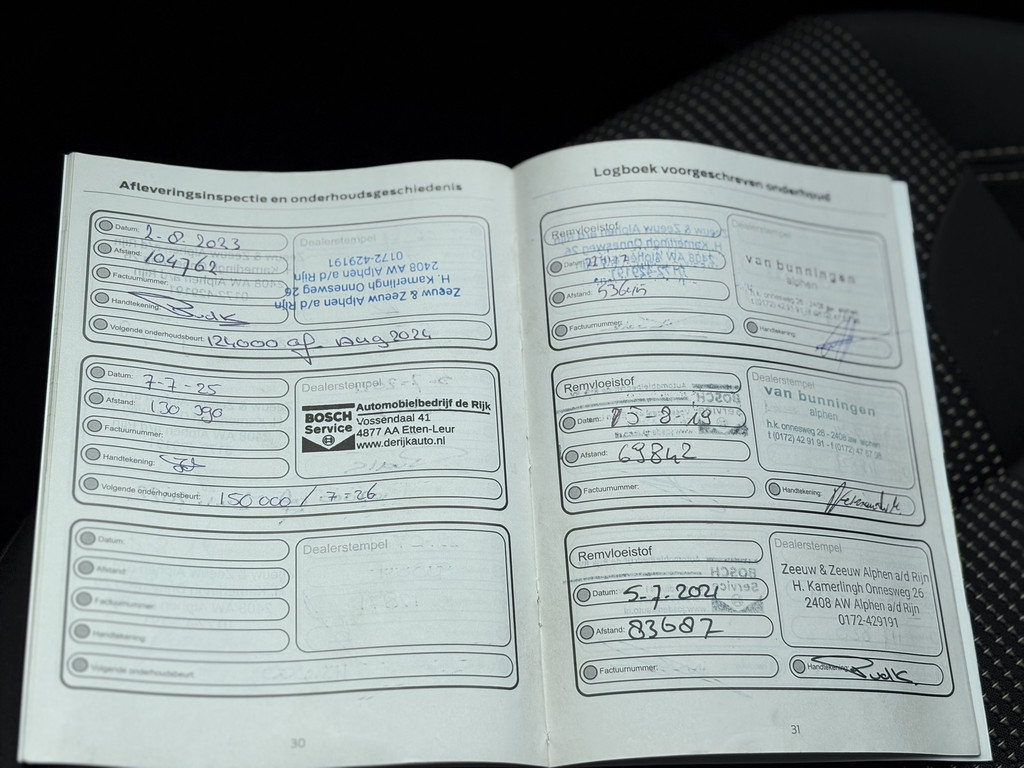 Afleveringsinspectie en onderhoudsgeschiedenis
Datum: 2-8-2023
Afstand: 104762
Factuurnummer:
Handtekening:
Volgende onderhoudsbeurt: 124000 of Aug 2024
Dealerstempel
Zeeuw & Zeeuw Alphen a/d Rijn
H. Kamerlingh Onnesweg 26
2408 AW Alphen a/d Rijn
0172-429191
Datum: 7-7-25
Afstand: 130 390
Factuurnummer:
Handtekening:
Volgende onderhoudsbeurt: 150 000 / 7-26
Dealerstempel
BOSCH
Service
Automobielbedrijf de Rijk
Vossendaal 41
4877 AA Etten-Leur
www.derijkauto.nl
Datum:
Afstand:
Factuurnummer:
Handtekening:
Volgende onderhoudsbeurt:
Dealerstempel
30
Logboek voorgeschreven onderhoud
Remvloeistof
Datum:
Afstand: 53645
Factuurnummer:
Dealerstempel
van bunningen
alphen
Handtekening:
Remvloeistof
Datum: 15-8-19
Afstand: 69842
Factuurnummer:
Dealerstempel
van bunningen
alphen
h.k. onnesweg 26 - 2408 aw alphen
t (0172) 42 91 91 - f (0172) 47
Handtekening:
Remvloeistof
Datum: 5-7-2021
Afstand: 83687
Factuurnummer:
Dealerstempel
Zeeuw & Zeeuw Alphen a/d Rijn
H. Kamerlingh Onnesweg 26
2408 AW Alphen a/d Rijn
0172-429191
Handtekening:
31